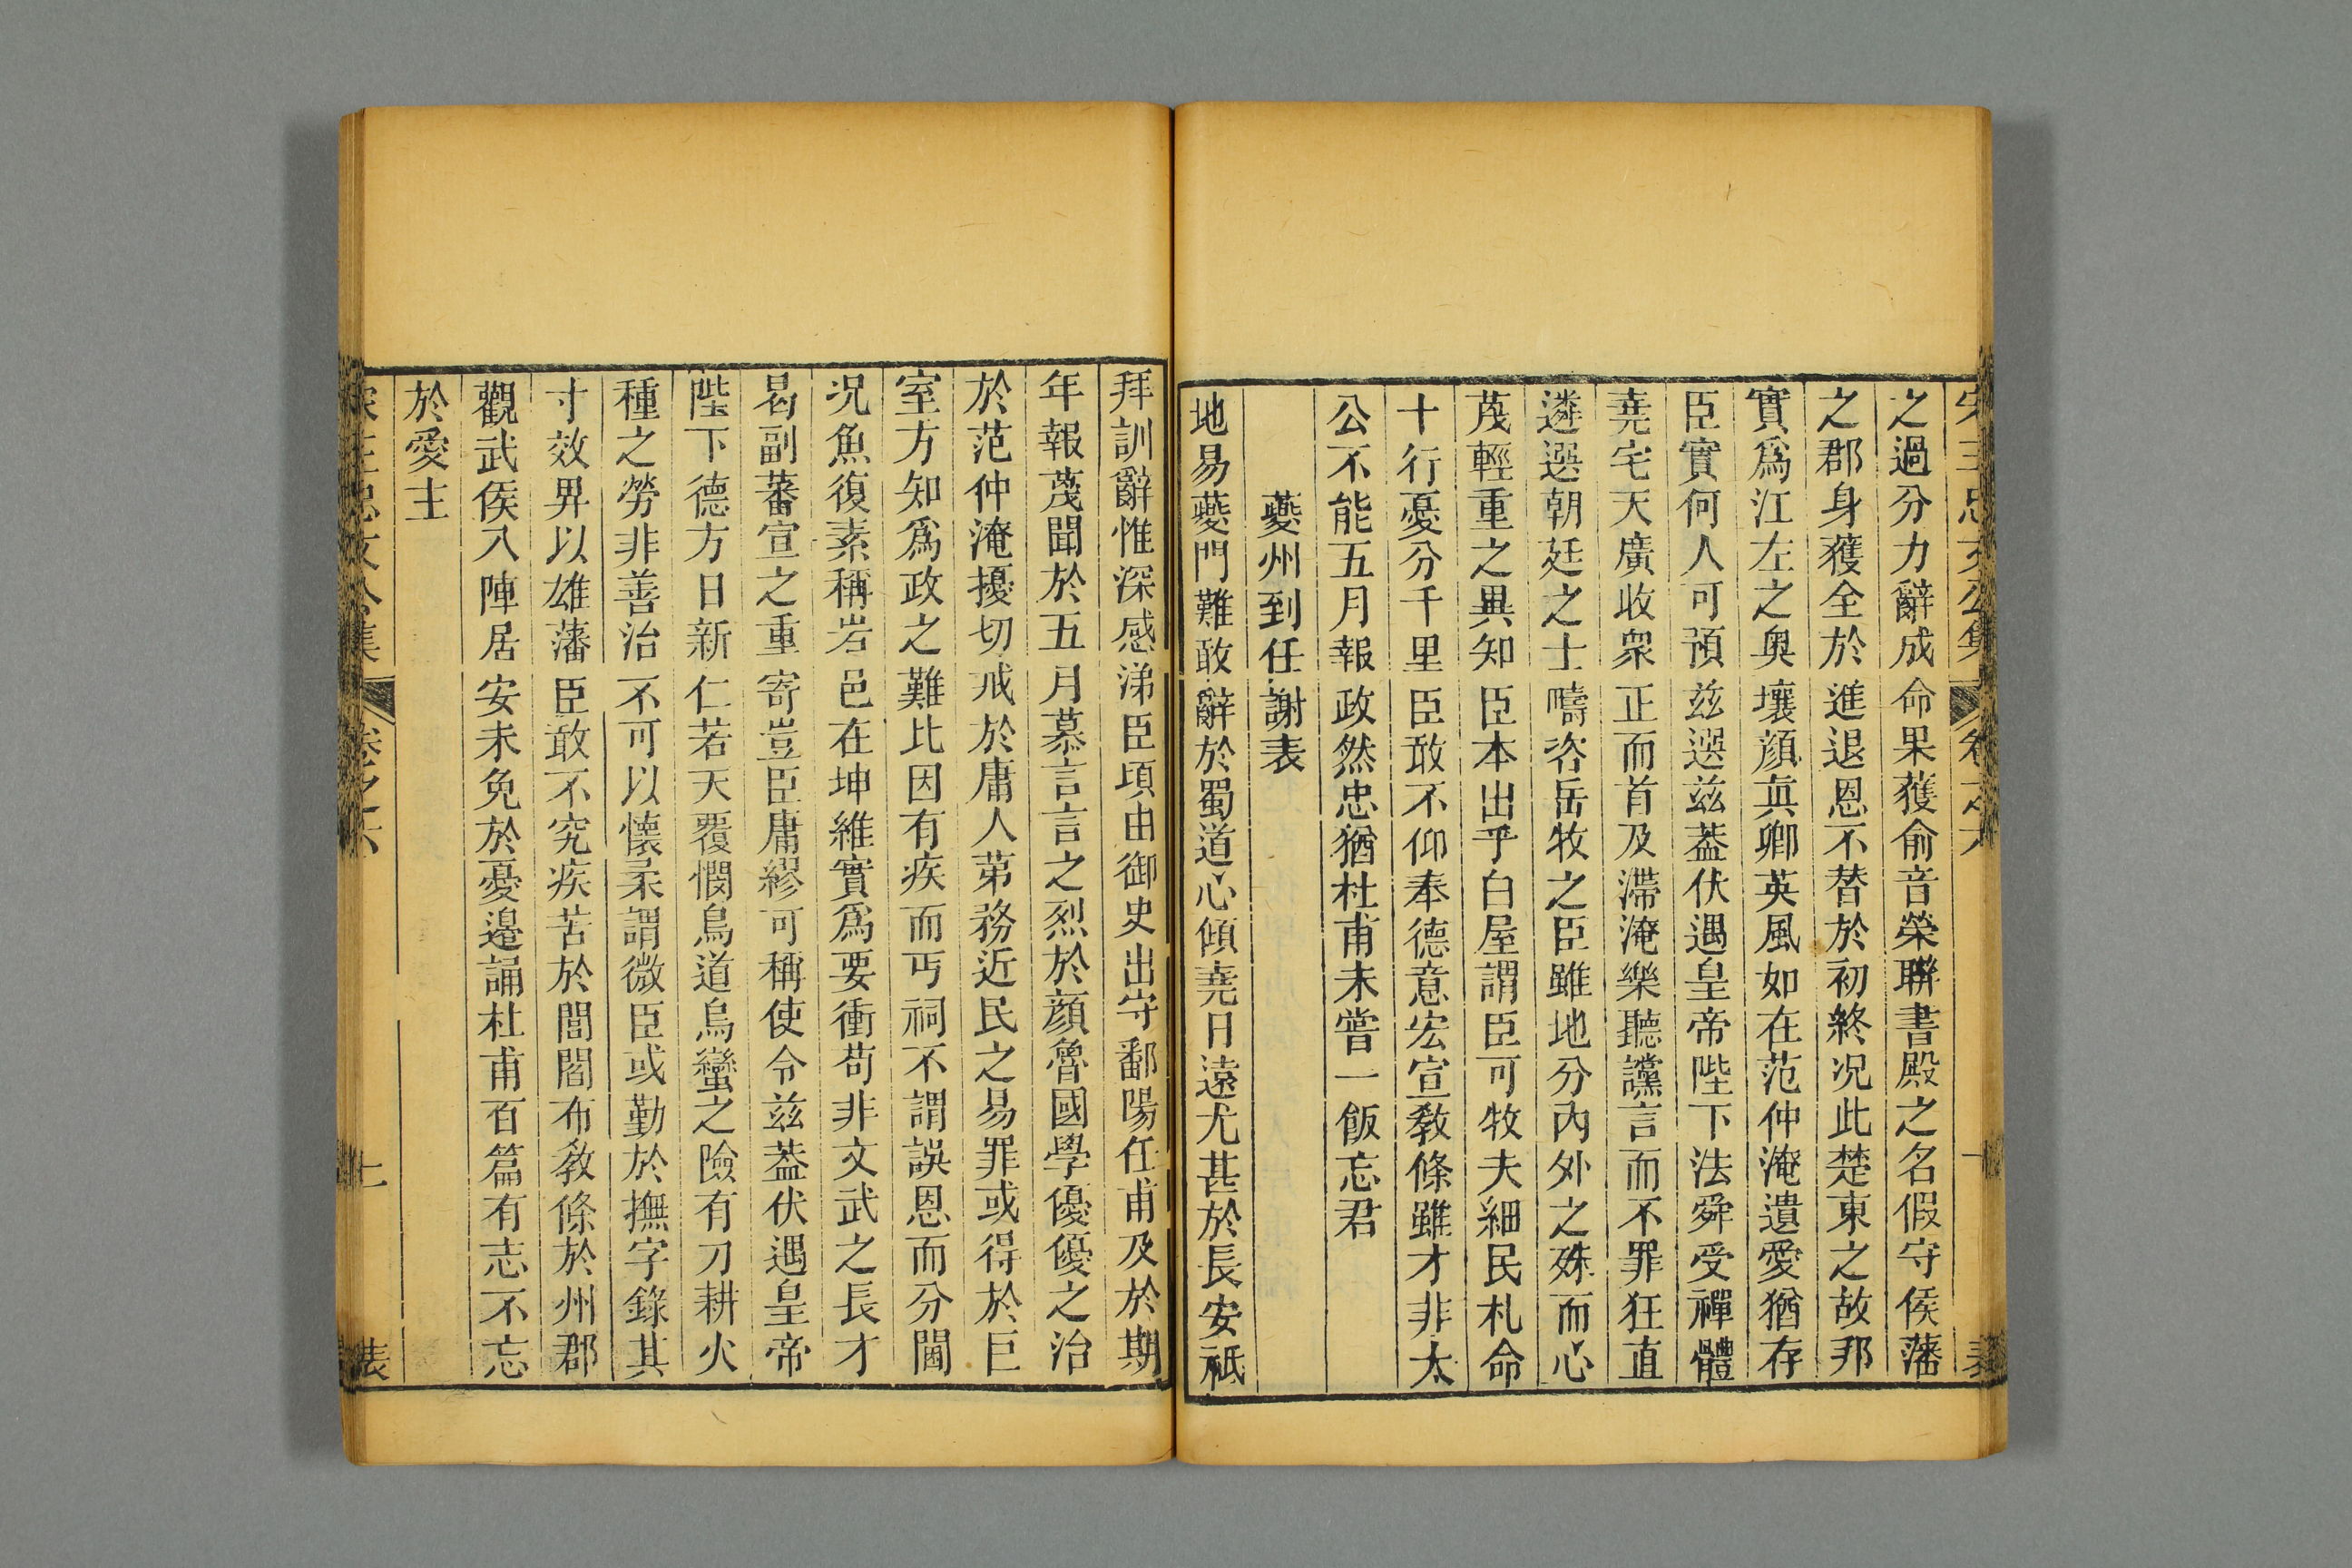 之過分力辭成命果獲俞音榮聯書殿之名假守侯藩
之郡身獲全於進退恩不替於初終况此楚東之故邦
實爲江左之奥壤顔真卿英風如在范仲淹遺愛猶存
臣實何人可預兹選兹蓋伏遇皇帝陛下法舜受禪體
堯宅天廣收衆正而首及滯淹樂聽讜言而不罪狂直
遴選朝廷之士疇咨岳牧之臣雖地分内外之殊而心
茂輕重之異知臣本出乎白屋謂臣可牧夫細民札命
十行憂分千里臣敢不仰奉德意宏宣敎條雖才非太
公不能五月報政然忠猶杜甫未嘗一飯忘君
夔州到任謝表
地易夔門難敢辭於蜀道心傾堯日遠尤甚於長安祗
拜訓辭惟深感涕臣頃由御史出守鄱陽任甫及於期
年報蔑聞於五月慕言言之烈於顔魯國學優優之治
於范仲淹擾切戒於庸人苐務近民之易罪或得於巨
室方知爲政之難比因有疾而丐祠不謂誤恩而分閫
况魚復素稱岩邑在坤維實爲要衝苟非文武之長才
曷副蕃宣之重寄豈臣庸繆可稱使令兹蓋伏遇皇帝
陛下德方日新仁若天覆憫鳥道烏蠻之險有刀耕火
種之勞非善治不可以懐柔謂微臣或勤於撫字錄其
寸效畀以雄藩臣敢不究疾苦於閭閻布敎條於州郡
觀武侯八陣居安未免於憂邊誦杜甫百篇有志不忘
於愛主
宋王忠文公集 卷之六 七 表